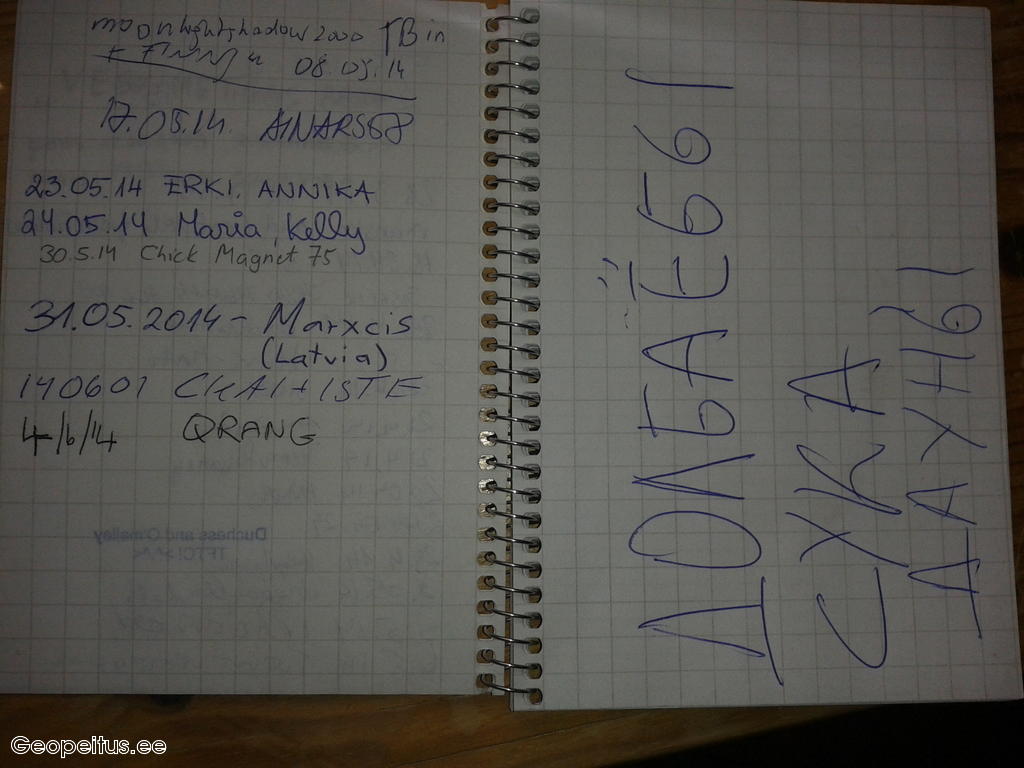 moonlightshadow2000 TB in
08.05.14
17.05.14. AINARS68
23.05.14 ERKI, ANNIKA
24.05.14 Maria, Kelly
30.5.14 Chick Magnet 75
31.05.2014 - Marxcis
(Latvia)
140601 CKAI + ISTE
4/6/14 QRANG
Duchess and O'malley
TFTC!
ДОЛБАЁБЫ
СУКА
ДАУНЫ
Geopeitus.ee